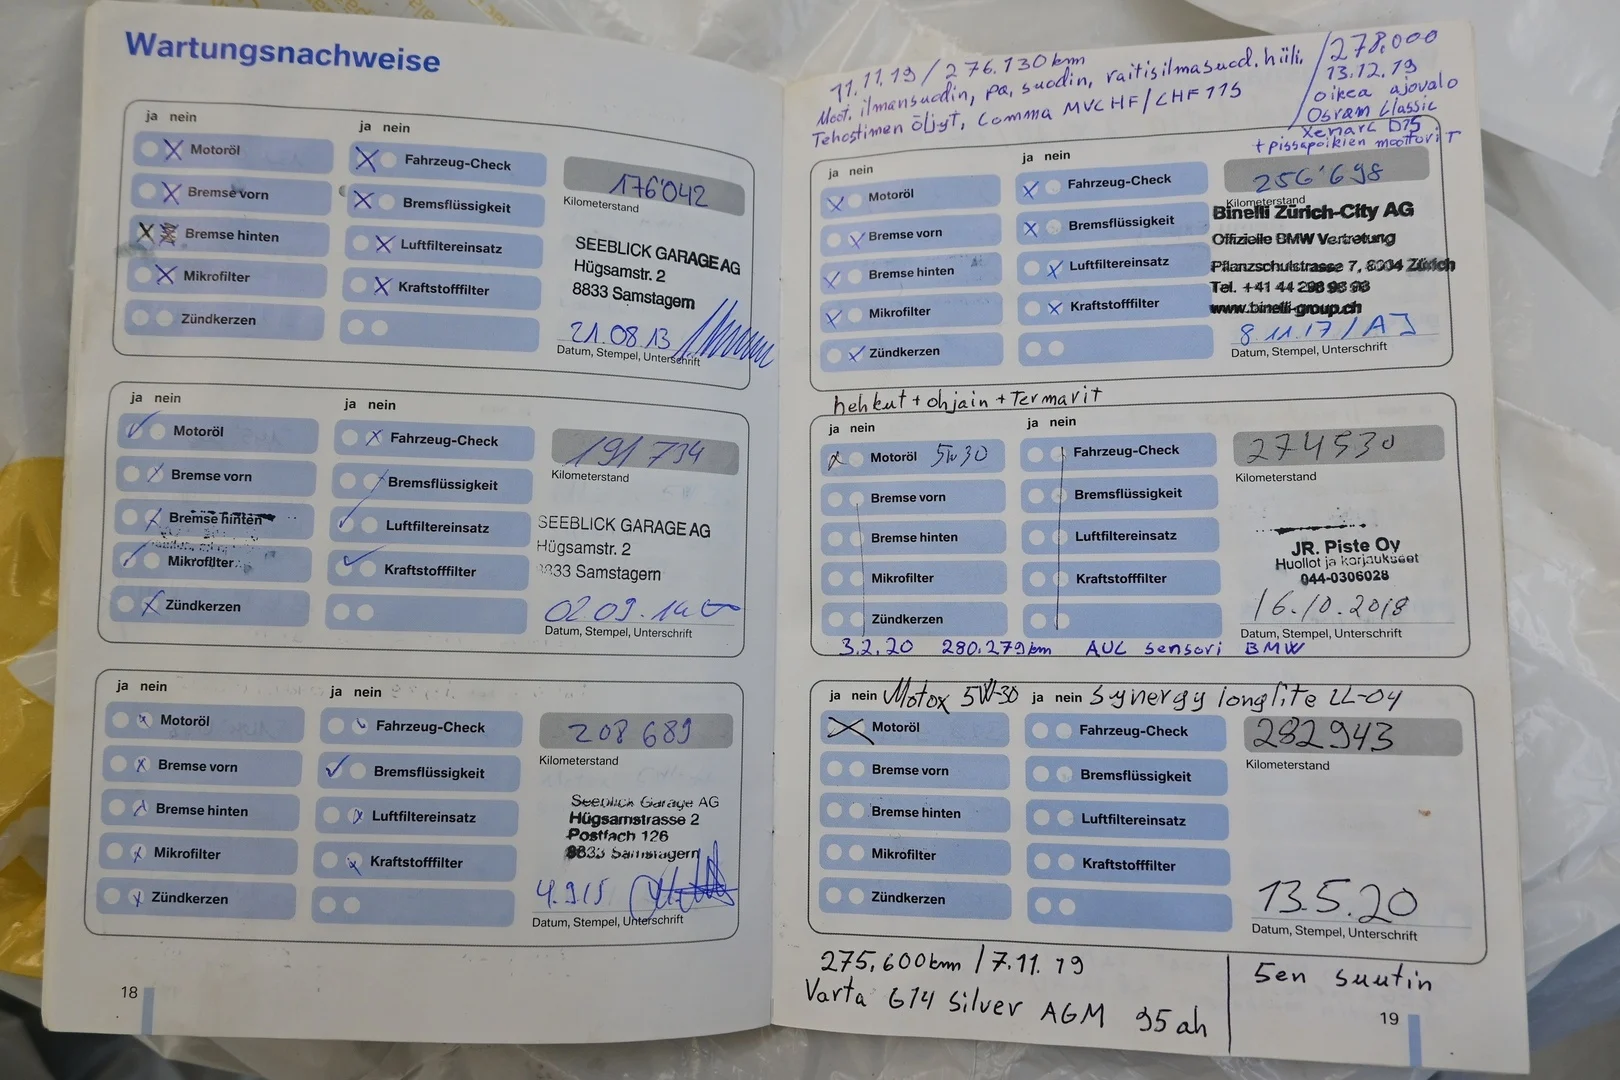 Wartungsnachweise
ja nein
Motoröl
Bremse vorn
Bremse hinten
Mikrofilter
Zündkerzen
ja nein
Fahrzeug-Check
Bremsflüssigkeit
Luftfiltereinsatz
Kraftstofffilter
176'042
Kilometerstand
SEEBLICK GARAGE AG
Hügsamstr. 2
8833 Samstagern
21.08.13
Datum, Stempel, Unterschrift
ja nein
Motoröl
Bremse vorn
Bremse hinten
Mikrofilter
Zündkerzen
ja nein
Fahrzeug-Check
Bremsflüssigkeit
Luftfiltereinsatz
Kraftstofffilter
191 734
Kilometerstand
SEEBLICK GARAGE AG
Hügsamstr. 2
8833 Samstagern
02.09.14
Datum, Stempel, Unterschrift
ja nein
Motoröl
Bremse vorn
Bremse hinten
Mikrofilter
Zündkerzen
ja nein
Fahrzeug-Check
Bremsflüssigkeit
Luftfiltereinsatz
Kraftstofffilter
208 689
Kilometerstand
Seeblick Garage AG
Hügsamstrasse 2
Postfach 126
8833 Samstagern
4.9.15
Datum, Stempel, Unterschrift
18
11.11.19 / 276.130 km
Moot. ilmansuodin, pa, suodin, raitisilmasuod. hiili,
Tehostimen öljyt, Comma MVCHF/CHF 11S
278,000
13.12.19
oikea ajovalo
Osram Classic
Xenarc D1S
+ pissapoikien moottorit
ja nein
Motoröl
Bremse vorn
Bremse hinten
Mikrofilter
Zündkerzen
ja nein
Fahrzeug-Check
Bremsflüssigkeit
Luftfiltereinsatz
Kraftstofffilter
256'698
Kilometerstand
Binelli Zürich-City AG
Offizielle BMW Vertretung
Pflanzschulstrasse 7, 8004 Zürich
Tel. +41 44 298 93 93
www.binelli-group.ch
8.11.17 / AJ
Datum, Stempel, Unterschrift
hehkut + ohjain + Termarit
ja nein
Motoröl 5W30
Bremse vorn
Bremse hinten
Mikrofilter
Zündkerzen
ja nein
Fahrzeug-Check
Bremsflüssigkeit
Luftfiltereinsatz
Kraftstofffilter
274530
Kilometerstand
JR. Piste Oy
Huollot ja korjaukset
044-0306028
16.10.2018
Datum, Stempel, Unterschrift
3.2.20 280.279km AUC sensori BMW
ja nein Motox 5W-30 ja nein Synergy longlife LL-04
Motoröl
Bremse vorn
Bremse hinten
Mikrofilter
Zündkerzen
Fahrzeug-Check
Bremsflüssigkeit
Luftfiltereinsatz
Kraftstofffilter
282943
Kilometerstand
13.5.20
Datum, Stempel, Unterschrift
275,600km / 7.11.19
Varta G14 Silver AGM 95ah
5en suutin
19